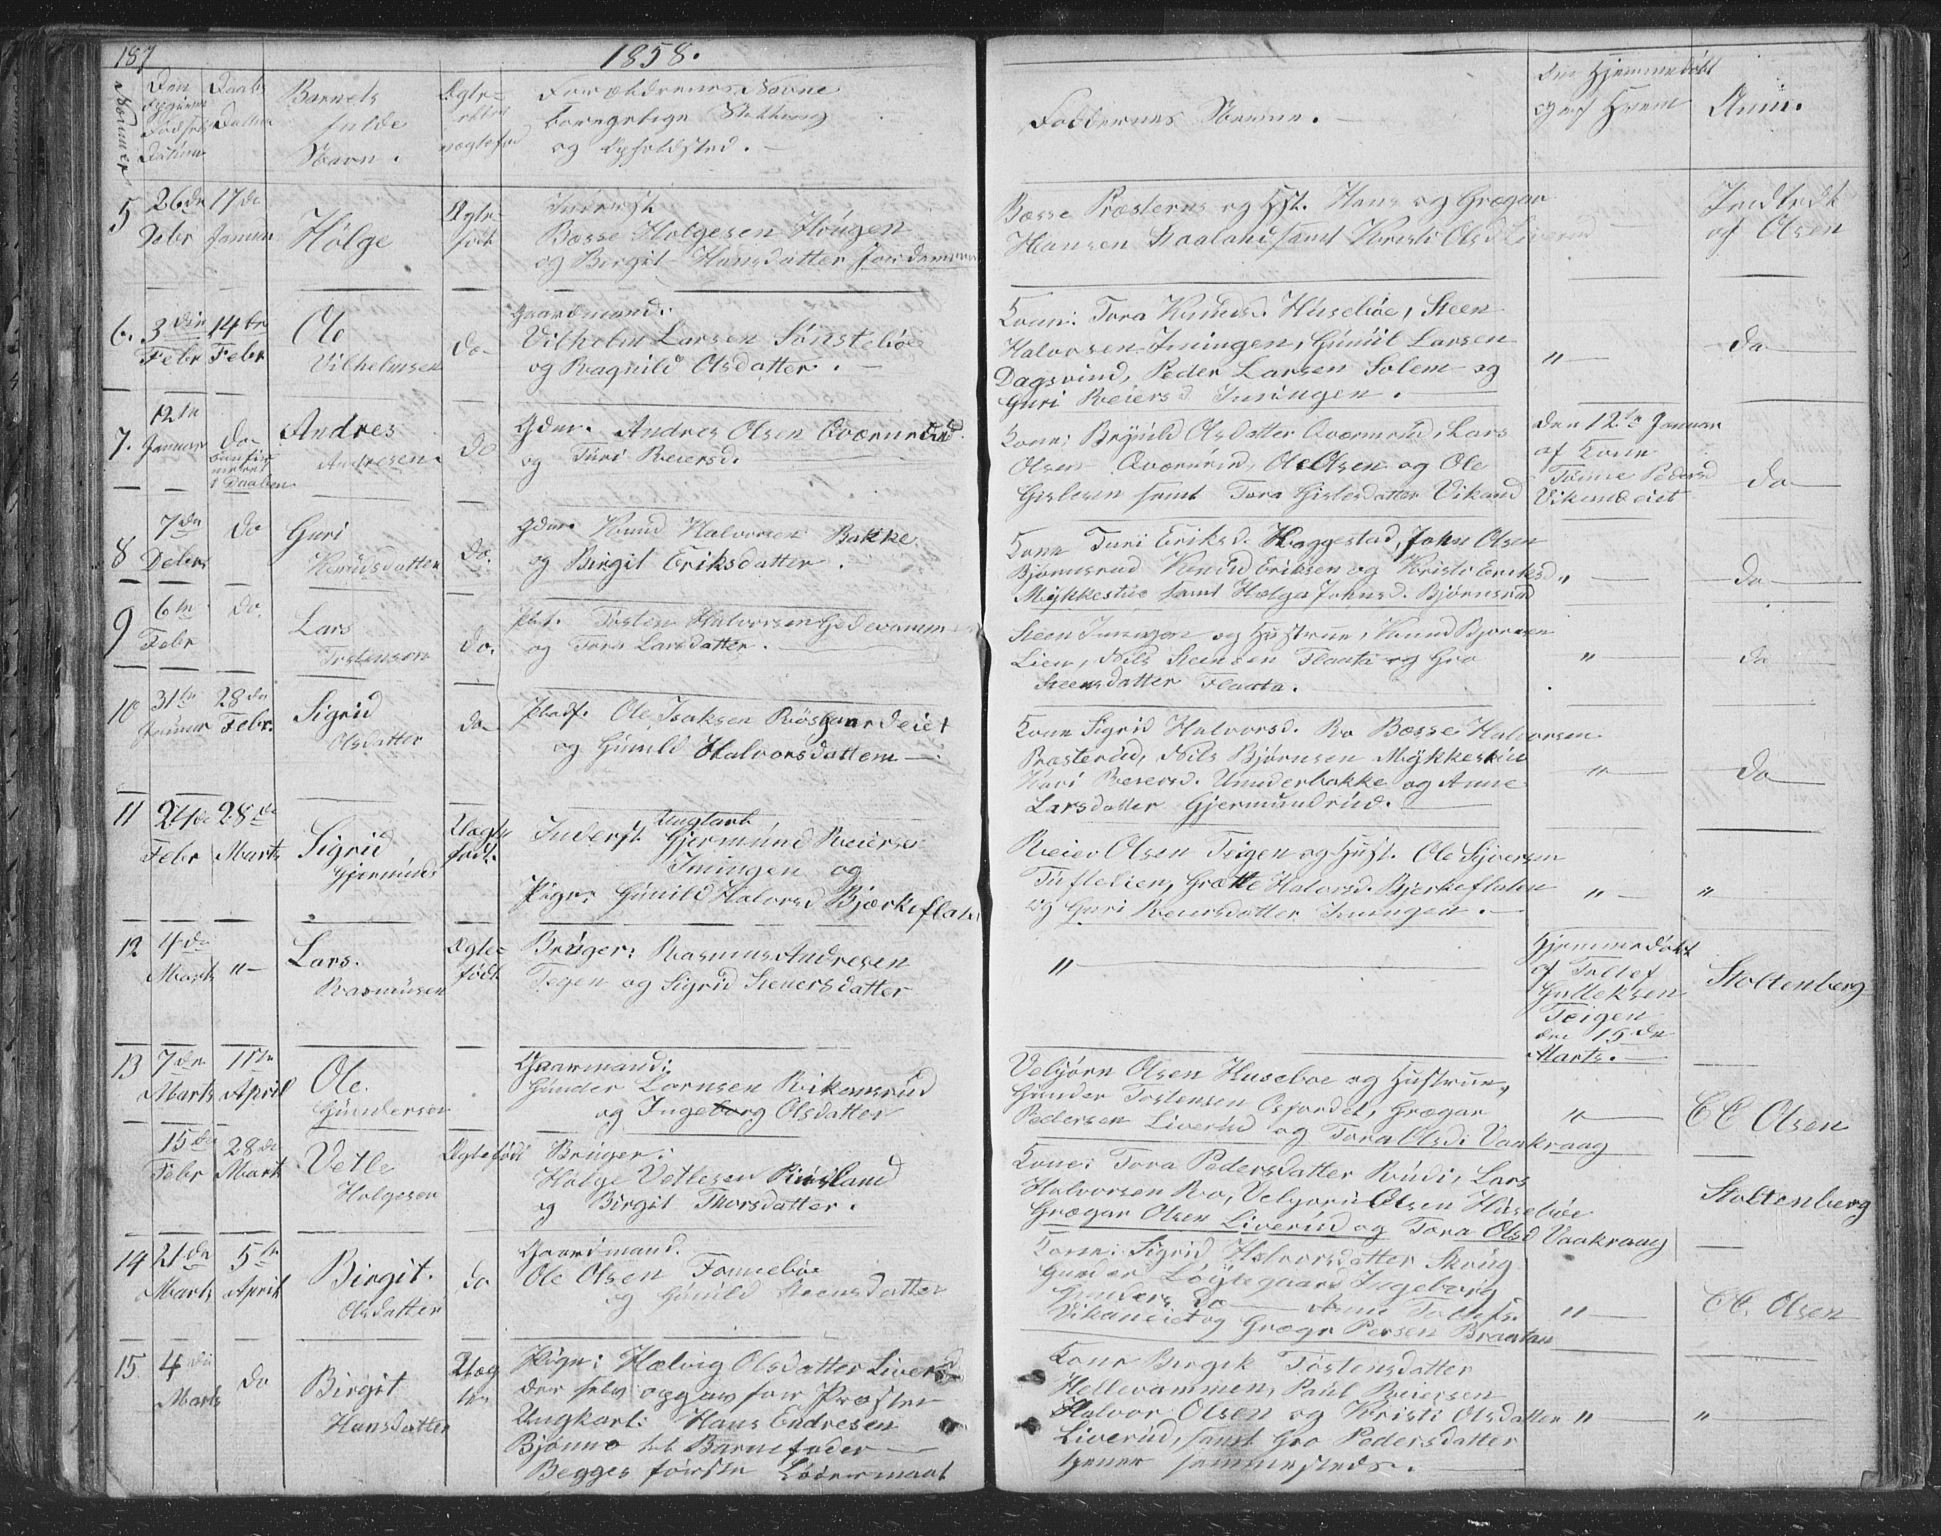 187
1858.
Nummer
Den
Fødsels
Datum
Daabs
Datum
Barnets
fulde
Navn.
Ægte
eller
uægtefød
Forældrenes Navne
borgerlige Stilling
og Opholdsted.
Faddernes Navne.
Om Hjemmedøbt
og af Hvem
Anm.
5
26de
Debr
17de
Januar
Hølge
Ægte
født
Inderst
Bosse Holgesen Høugen
og Birgit Hansdatter
Bosse Præsterus og Hst. Hans og Grægar
HansenRaaland samt Kristi Olsd Liverud
Indtrdt
af Olsen
6.
3die
Febr
14de
Febr
Ole
Vilhelmsen
do
Gaardmand:
Vilhelm Larsen Sønstebøe
og Ragnild Olsdatter.
Kone: Tora Knuds. Husebøe, Steen
Halvorsen Inningen, Gunil Larsen
Dagsvind, Peder Larsen Solem og
Guri Reiersd Inningen.
"
do
7.
12te
Januar
do
confir
meret
i Daaben
Andres
Andresen
do
Gdmr. Andres Olsen Qværnerud
og Turi Reiersd.
Kone: Brynild Olsdatter Qværnrud, Lars
Olsen Qværnrud, Ole Olsen og Ole
Gislesen samt Tora Gislesdatter Vikand
den 12te Januar
af Kone
Tonne Pedersd
Vikandeiet
do
8
7de
Debr
do
Guri
Knudsdatter
do.
Gdmr. Knud Halvorsen Bakke
og Birgit Eriksdatter.
Kone Turi Eriksd. Haggestad, John Olsen
Bjørnsrud Knud Eriksen og Kristi Eriksd
Mykkestue samt Helge Johnsd. Bjørnsrud
"
do
9
6te
Febr
do.
Lars
Tostensen
do.
Pst. Tosten Halvorsen Gudevamm
og Tora Larsdatter.
Steen Inningen og Hustrue, Knud Bjornsen
Lien, Nils Steensen Flaata og Gro
Steensdatter Flaata.
"
do
10
31te
Januar
28de
Febr.
Sigrid
Olsdatter
do
Pladf. Ole Isaksen Røsgaardeiet
og Gunild Halvorsdattem
Kone Sigrid Halvorsd. Ro Bosse Halvorsen
Præsterud, Nils Bjørnsen Mykkestue
Kari Reiersd. Unnderbakke og Anne
Larsdatter Gjermundrud.
"
do
11
24de
Febr
28de
Marts
Sigrid
Gjermunds
Uægte
født.
Ungkarl
Inderst Gjermund Reiersen
Inningen og
Pige: Gunild Halvorsd Bjærkeflaten
Reier Olsen Teigen og Hust. Ole Syversen
Tuftelien, Grætte Halvorsd. Bjerkeflaten
og Guri Reiersdatter Inningen.
"
"
12
4de
Marts
"
Lars.
Rasmusen
Ægte
født
Brüger: Rasmus Andresen
Tegen og Sigrid Stenersdatter
"
Hjemmedøbt
af Tollef
Gulleksen
Teigen
den 15de
Marts.
Stoltenberg
13
7de
Marts
11te
April
Ole
Gundersen
Gaarmand:
Gunder Larnsen Rikansrud
og Ingeborg Olsdatter
Velbjørn Olsen Huseboe og Hustrue,
Gunder Tostensen Osjordet, Grægar
Pedersen Liverud og Tora Olsd. Vaakraag
"
CC Olsen
15de
Febr
28de
Marts
Vetle
Holgesen
Ægtefødt
Brüger:
Holge Vetlesen Ruusland
og Birgit Thorsdatter.
Kone: Tora Pedersdatter Rudi, Lars
Halvorsen Ro, Velbjørn Olsen Husebøe
Grægar Olsen Liverud og Tora Olsd Vaakraag
Stoltenberg
14
21de
Marts
5te
April
Birgit.
Olsdatter
do
Gaardmand.
Ole Olsen Fonnebøe
og Gunild Steensdatter
Kone: Sigrid Halvorsdatter Skrug
Gunder Løytegaard Ingeborg
Gunders do Anne Tollefs.
Vikaneiet og Grægr Persen Braaten
"
CC. Olsen
15.
4de
Marts
do
Birgit
Hansdatter
Uæg
te
Pige: Hælvig Olsdatter Liverud
der selv opgav for Præsten
Ungkarl: Hans Endresen
Bjønno til Barnefader
Begges første Leiermaal
Kone Birgit Tøstensdatter
Hellevammen, Paul Reiersen
Halvor Olsen og Kristi Olsdatter
Liverud, samt Gro Pedersdatter
tjener sammesteds.
"
"